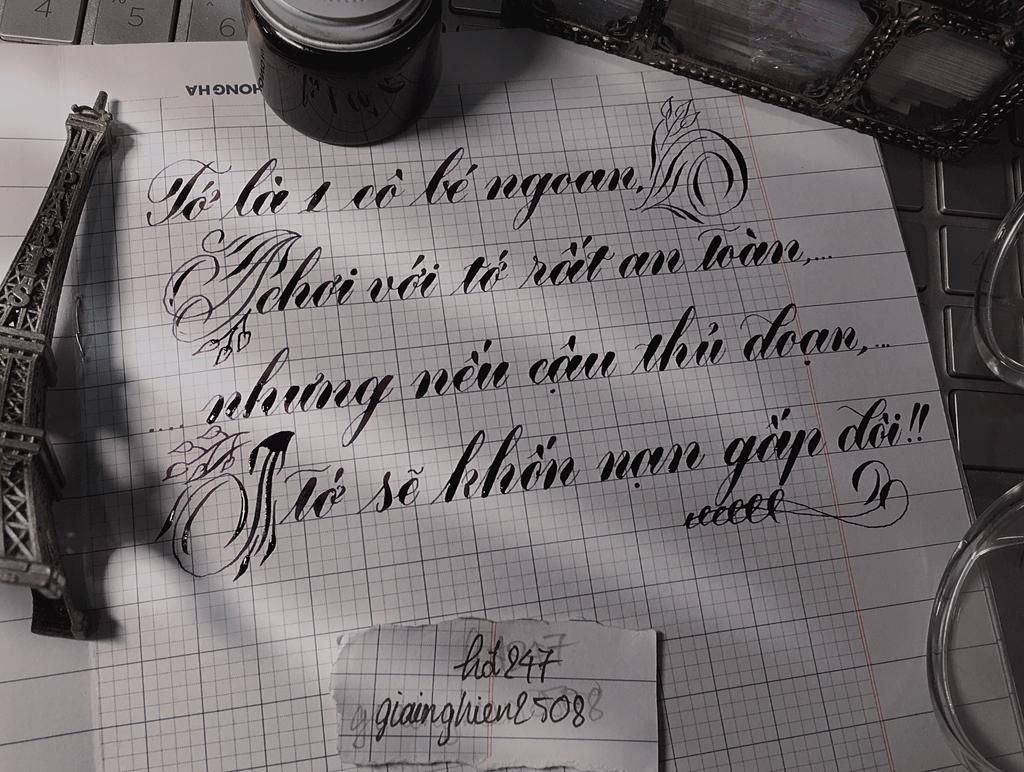 4 5 6
HONG HA
Tớ là 1 cô bé ngoan,
chơi với tớ rất an toàn,...
.... nhưng nếu cậu thủ đoạn,...
tớ sẽ khốn nạn gấp đôi!!
hot247
giainghien2508